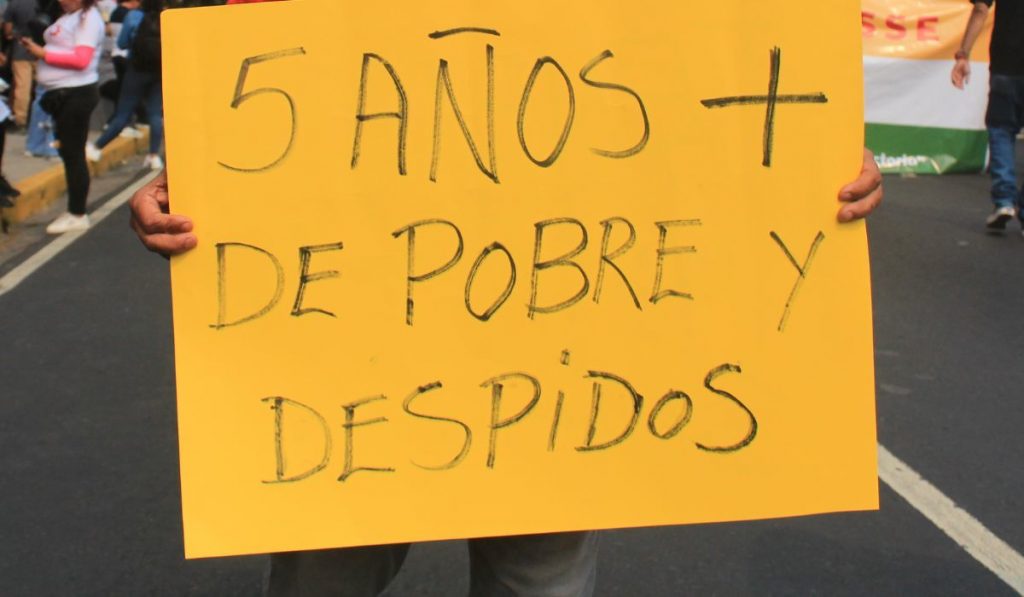 5 AÑOS +
DE POBRE Y
DESPIDOS
SSE